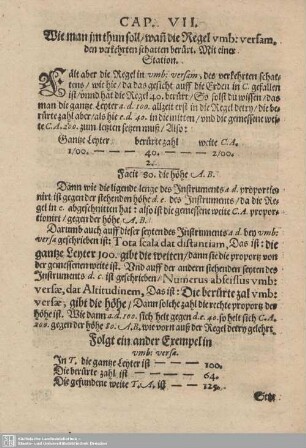 CAP. VII.
Wie man jm thun soll/ wañ die Regel vmb: versam,
den verkehrten schatten berürt. Mit einer
Station.
Fält aber die Regel in vmb: versam, des verkehrten schat-
tens/ wie hie/ da das gesicht auff die Erden in C. gefallen
ist/ vnnd hat die Regel 40. berürt/ So solst du wissen/ das
man die gantze Leyter a.d. 100. allzeit erst in die Regel detry/ die be-
rürte zahl aber/ als hie e.d. 40. in die mitten/ vnd die gemessene weite
C.A. 200. zum letzten setzen muß/ Also:
Gantze Leyter/ berürte zahl/ weite C.A.
1/00. — 40. — 2/00.
2.
Facit 80. die höhe A.B.
Dann wie die ligende lenge des Instruments a.d. proportio-
nirt ist gegen der stehenden höhe d.e. des Instruments/ da die Re-
gel in e. abgeschnitten hat: also ist die gemessene weite C.A. propor-
tionirt/ gegen der höhe A.B.
Darumb auch auff dieser seyten des Instruments a.d. bey vmb: ver-
sa geschrieben ist: Tota scala dat distantiam, Das ist: die
gantze Leyter 100. gibt die weiten/ dann sie die proportz von
der gemessenen weite ist. Vnd auff der andern stehenden seyten des
Instruments d.c. ist geschrieben/ Numerus abscissus vmb:
versæ, dat Altitudinem, Das ist: Die berürte zal vmb:
versæ, gibt die höhe/ Dann solche zahl die rechte proportz der
höhe ist. Wie dann a.d. 100. sich helt gegen d.e. 40. so helt sich C.A.
200. gegen der höhe 80. A.B. wie vorn auß der Regel detry gelehrt.
Folgt ein ander Exempel in
vmb: versa.
In T. die gantze Leyter ist — 100.
Die berürte zahl ist — 64.
Die gefundene weite T.A. ist — 125.
Setz